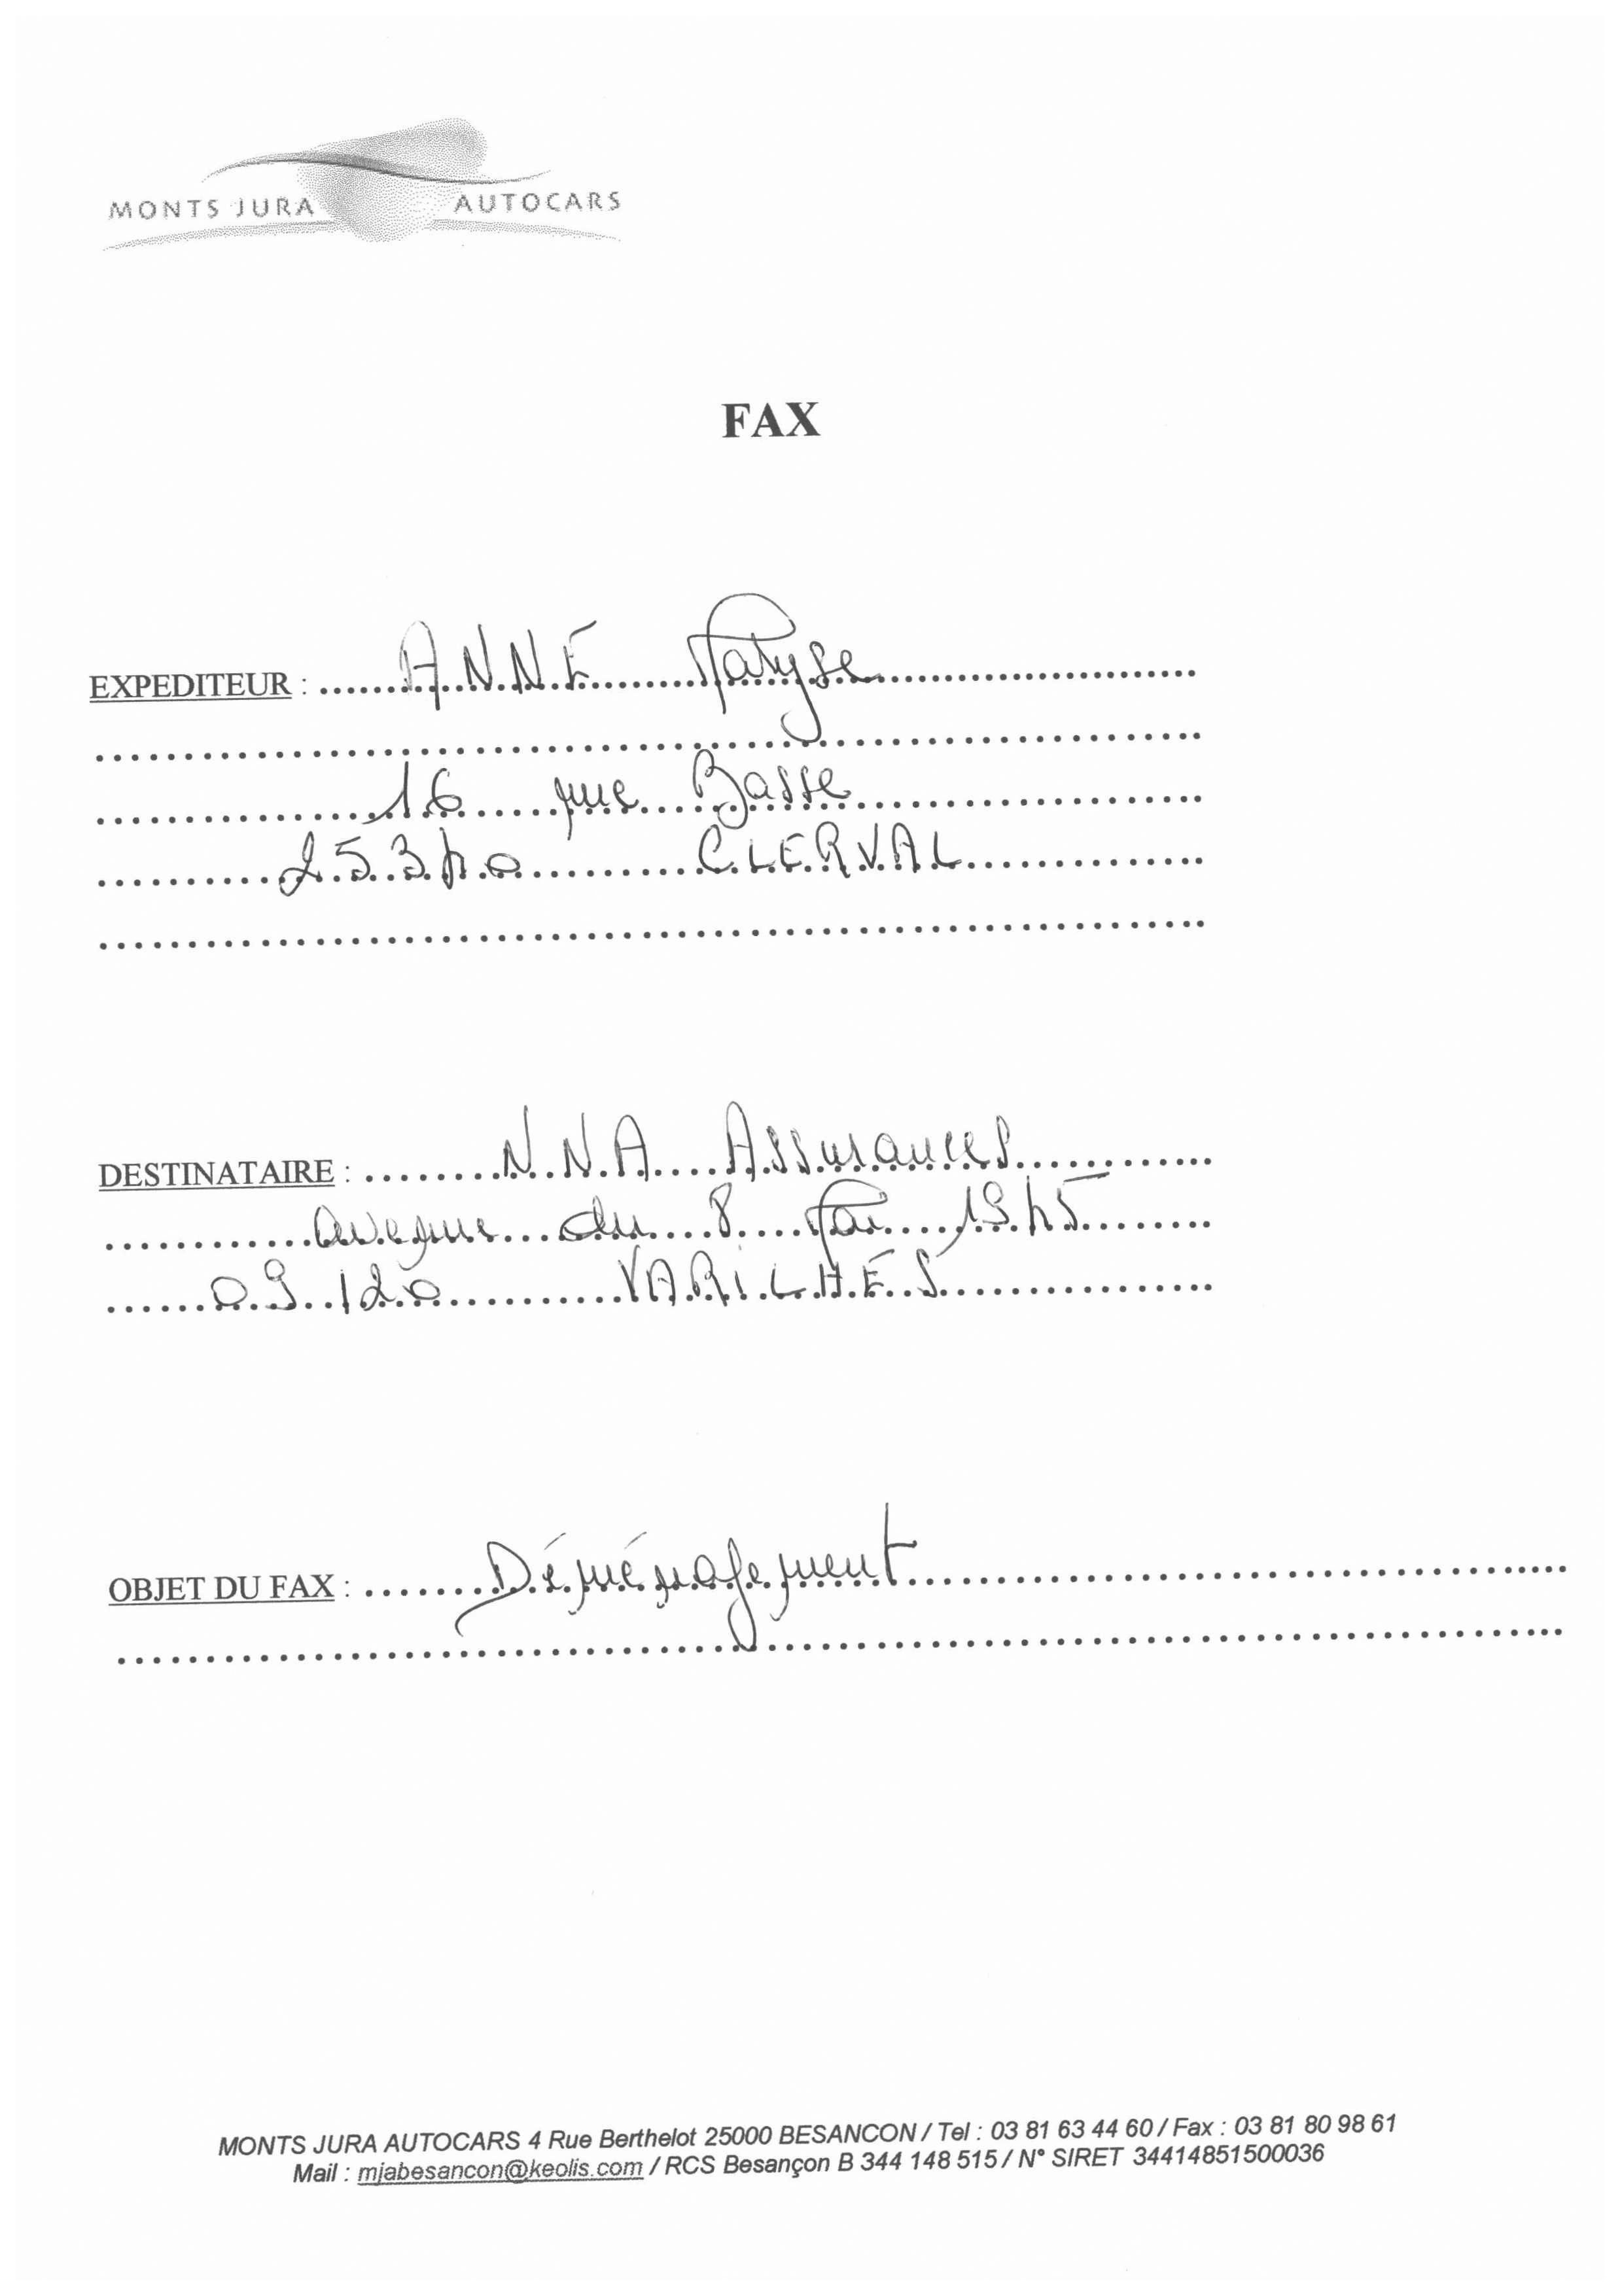 MONTS JURA AUTOCARS
FAX
EXPEDITEUR : ANNE Maryse
16 rue Basse
25340 CLERVAL
DESTINATAIRE : N.N.A Assurances
avenue du 8 Mai 1945
09120 VARILHES
OBJET DU FAX : Déménagement
MONTS JURA AUTOCARS 4 Rue Berthelot 25000 BESANCON / Tel : 03 81 63 44 60 / Fax : 03 81 80 98 61
Mail : mjabesancon@keolis.com / RCS Besançon B 344 148 515 / N° SIRET 34414851500036